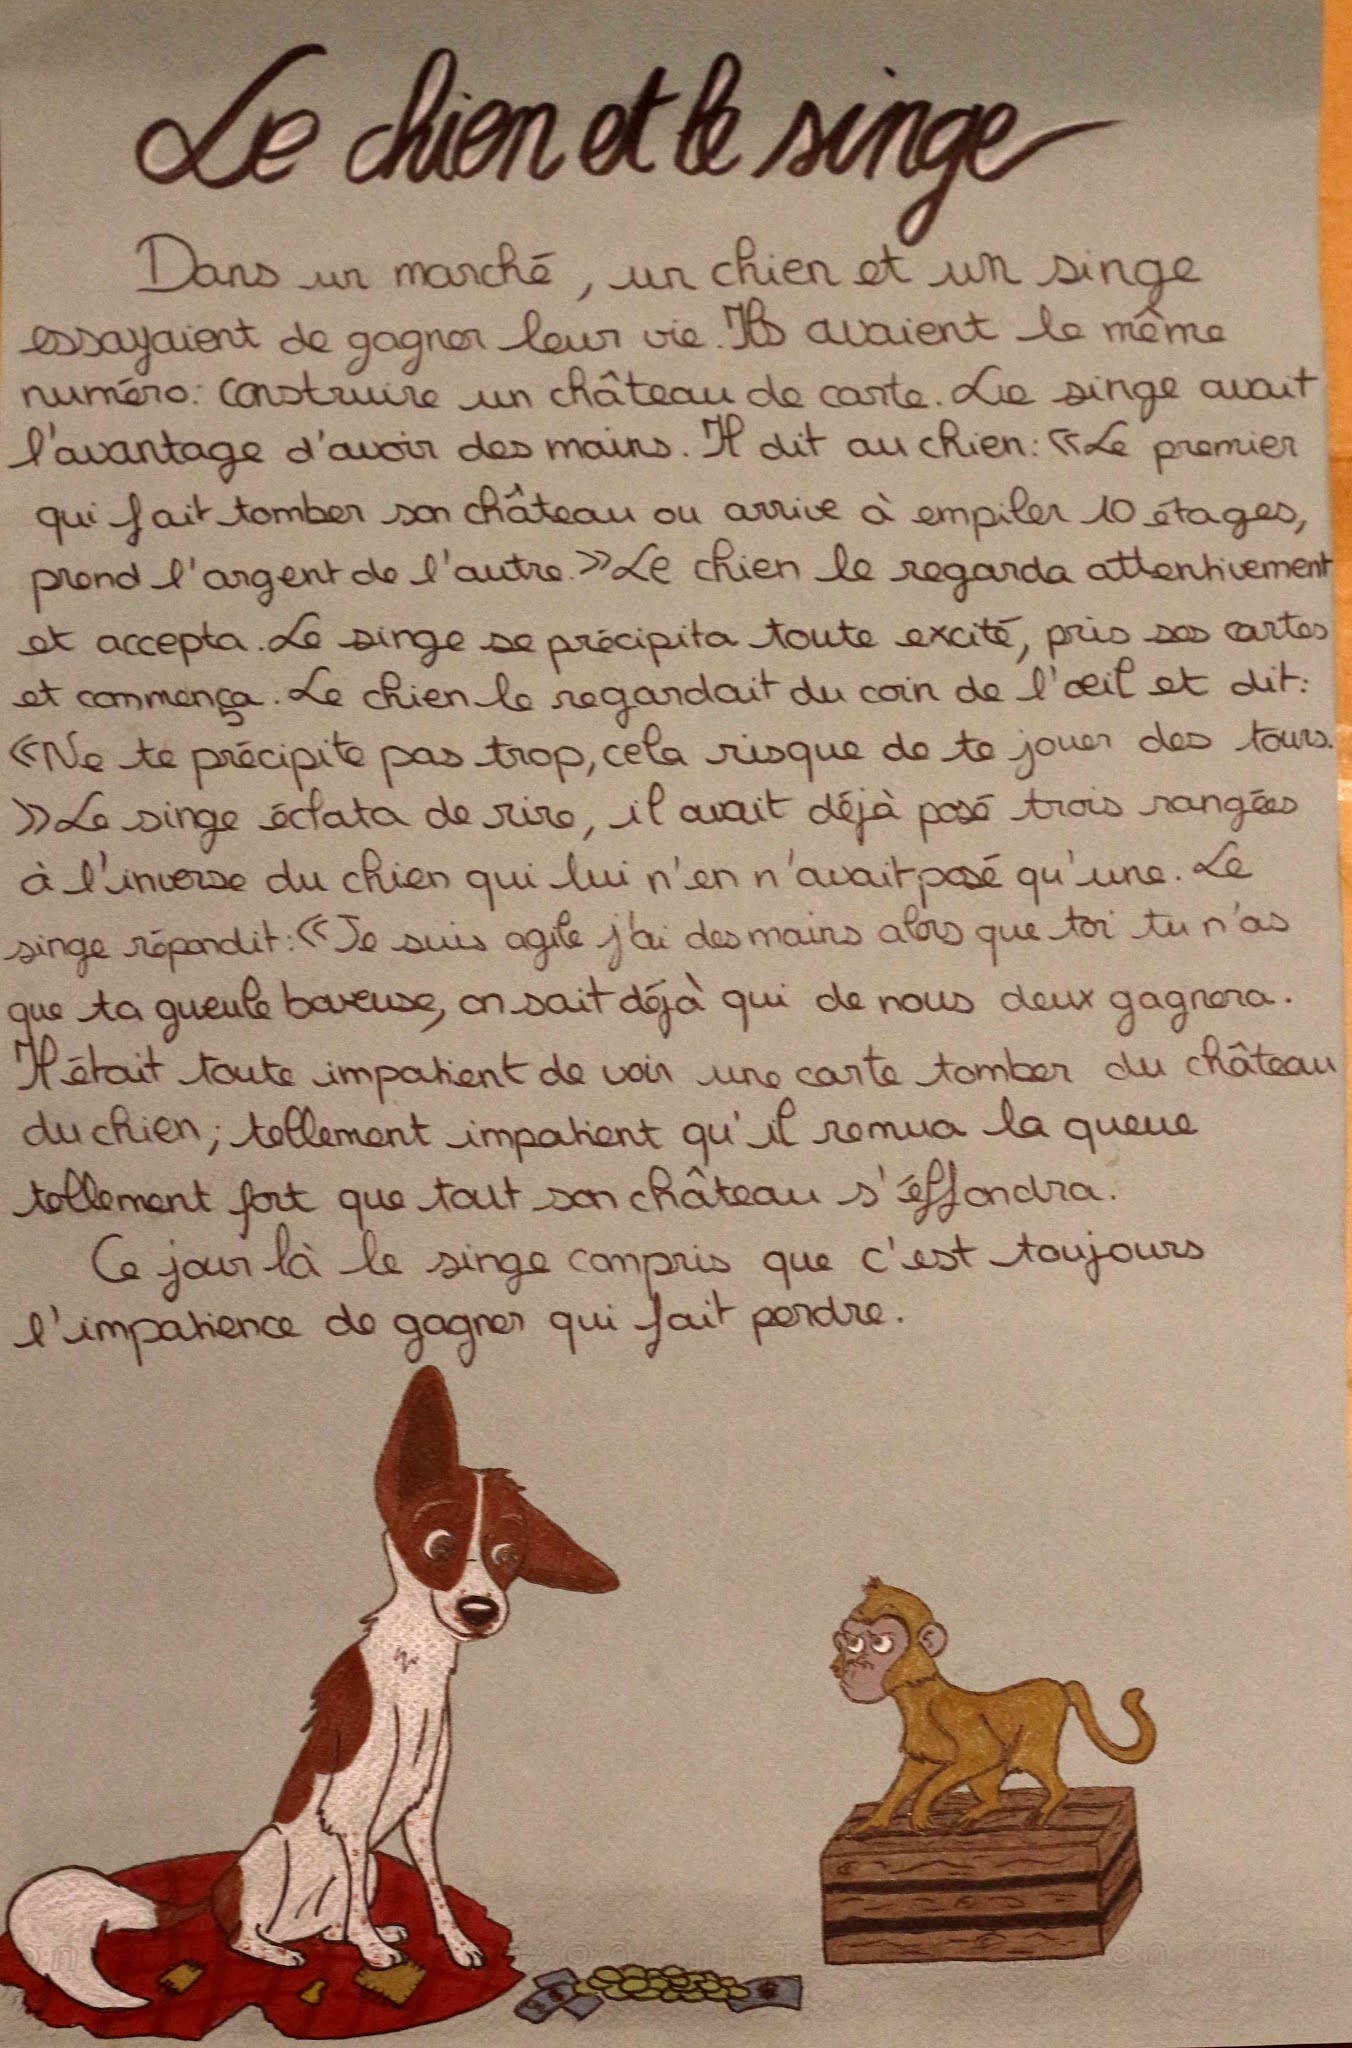 Le chien et le singe
Dans un marché, un chien et un singe
essayaient de gagner leur vie. Ils avaient le même
numéro: construire un château de carte. Le singe avait
l'avantage d'avoir des mains. Il dit au chien: «Le premier
qui fait tomber son château ou arrive à empiler 10 étages,
prend l'argent de l'autre.» Le chien le regarda attentivement
et accepta. Le singe se précipita toute excité, pris ses cartes
et commença. Le chien le regardait du coin de l'œil et dit:
«Ne te précipite pas trop, cela risque de te jouer des tours.
» Le singe éclata de rire, il avait déjà posé trois rangées
à l'inverse du chien qui lui n'en n'avait posé qu'une. Le
singe répondit: «Je suis agile j'ai des mains alors que toi tu n'as
que ta gueule baveuse, on sait déjà qui de nous deux gagnera.
Il était toute impatient de voir une carte tomber du château
du chien; tellement impatient qu'il remua la queue
tellement fort que tout son château s'éffondra.
Ce jour là le singe compris que c'est toujours
l'impatience de gagner qui fait perdre.